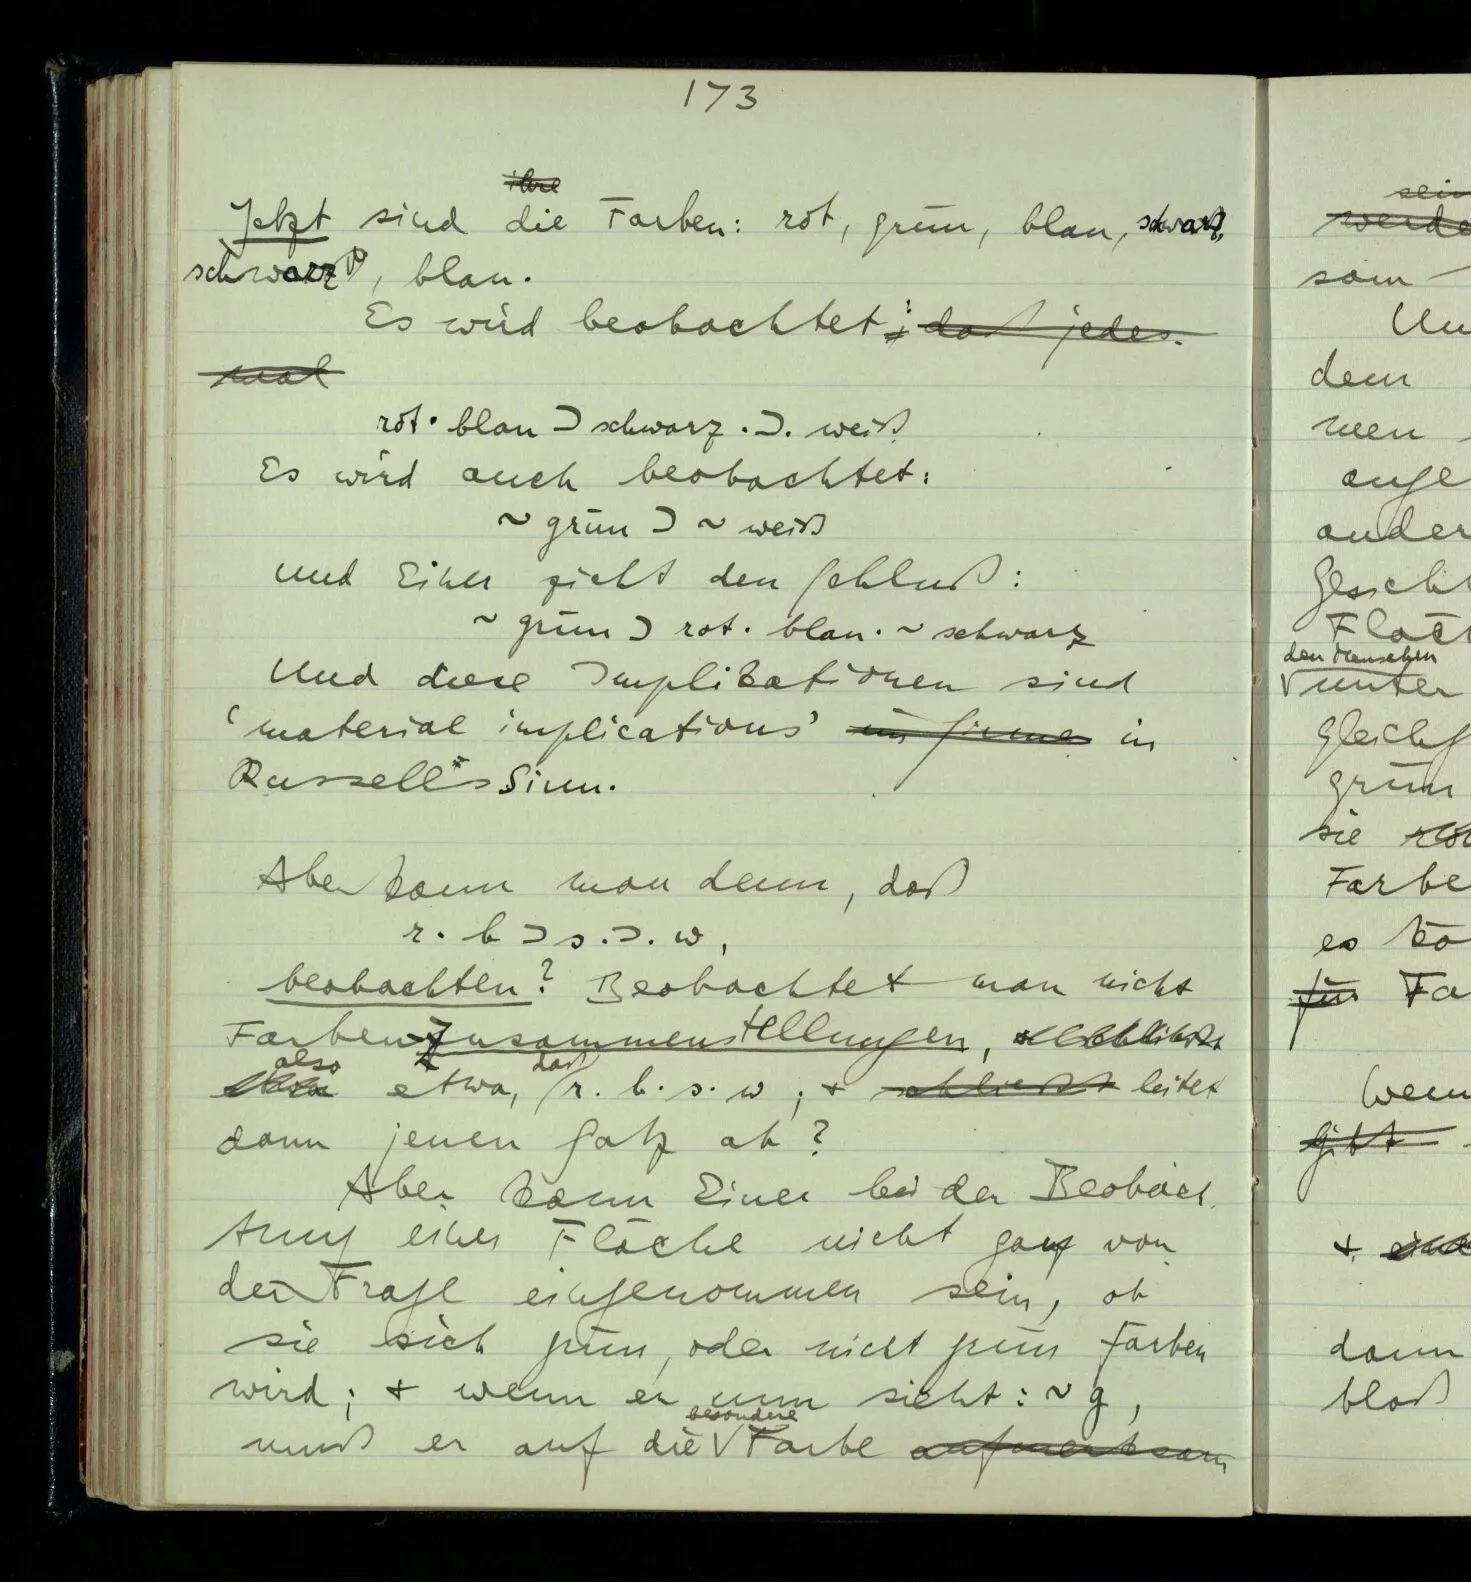 173
ihre
Jetzt sind die Farben: rot, grün, blau, schwarz,
schwarz, blau.
Es wird beobachtet: daß jedes-
mal
rot . blau ⊃ schwarz .⊃. weiß
Es wird auch beobachtet:
~ grün ⊃ ~ weiß
Und Einer zieht den Schluß:
~ grün ⊃ rot . blau . ~ schwarz
Und diese Implikationen sind
‘material implications’ im Sinne in
Russell's Sinn.
Aber kann man denn, daß
r . b ⊃ s .⊃. w,
beobachten? Beobachtet man nicht
Farbenzusammenstellungen,
also daß
etwa, r . b . s . w ; & schließt leitet
dann jenen Satz ab?
Aber kann Einer bei der Beobach-
tung einer Fläche nicht ganz von
der Frage eingenommen sein, ob
sie sich grün, oder nicht grün färben
wird; & wenn er nun sieht: ~ g,
besondere
muß er auf die Farbe aufmerksam
sein
werde
dem
den Menschen
unter
grün
sie
Farbe
es
für Fa
gibt
&
dann
bloß